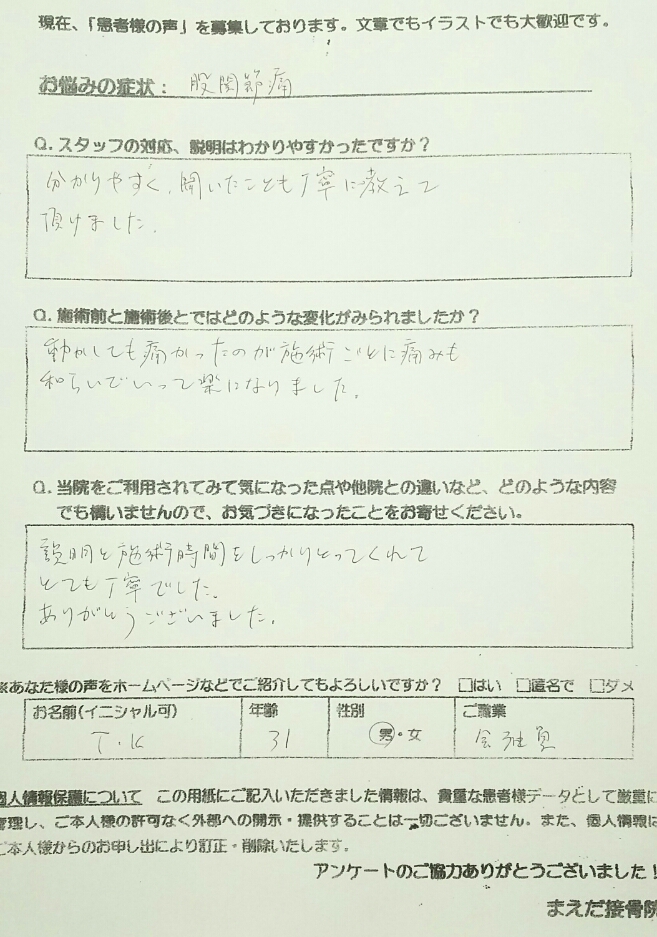 現在、「患者様の声」を募集しております。文章でもイラストでも大歓迎です。
お悩みの症状： 股関節痛
Q.スタッフの対応、説明はわかりやすかったですか？
分かりやすく、聞いたことも丁寧に教えて
頂けました。
Q.施術前と施術後とではどのような変化がみられましたか？
動かしても痛かったのが施術ごとに痛みも
和らいでいって楽になりました。
Q.当院をご利用されてみて気になった点や他院との違いなど、どのような内容
でも構いませんので、お気づきになったことをお寄せください。
説明と施術時間をしっかりとってくれて
とても丁寧でした。
ありがとうございました。
※あなた様の声をホームページなどでご紹介してもよろしいですか？ □はい □匿名で □ダメ
お名前(イニシャル可) 年齢 性別 ご職業
T・K 31 男・女 会社員
個人情報保護について この用紙にご記入いただきました情報は、貴重な患者様データとして厳重に
管理し、ご本人様の許可なく外部への開示・提供することは一切ございません。また、個人情報は
ご本人様からのお申し出により訂正・削除いたします。
アンケートのご協力ありがとうございました！
まえだ接骨院